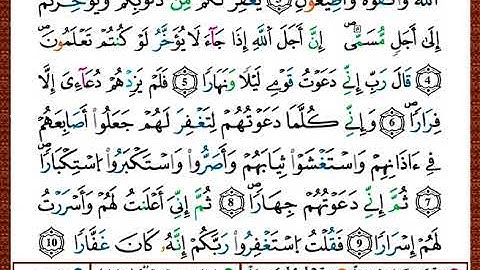 ٱللَّهَ وَٱتَّقُوهُ وَأَطِيعُونِ ٣ يَغۡفِرۡ لَكُم مِّن ذُنُوبِكُمۡ وَيُؤَخِّرۡكُمۡ
إِلَىٰٓ أَجَلٖ مُّسَمًّىۚ إِنَّ أَجَلَ ٱللَّهِ إِذَا جَآءَ لَا يُؤَخَّرُۚ لَوۡ كُنتُمۡ تَعۡلَمُونَ
٤ قَالَ رَبِّ إِنِّي دَعَوۡتُ قَوۡمِي لَيۡلٗا وَنَهَارٗا ٥ فَلَمۡ يَزِدۡهُمۡ دُعَآءِيٓ إِلَّا
فِرَارٗا ٦ وَإِنِّي كُلَّمَا دَعَوۡتُهُمۡ لِتَغۡفِرَ لَهُمۡ جَعَلُوٓاْ أَصَٰبِعَهُمۡ
فِيٓ ءَاذَانِهِمۡ وَٱسۡتَغۡشَوۡاْ ثِيَابَهُمۡ وَأَصَرُّواْ وَٱسۡتَكۡبَرُواْ ٱسۡتِكۡبَارٗا
٧ ثُمَّ إِنِّي دَعَوۡتُهُمۡ جِهَارٗا ٨ ثُمَّ إِنِّيٓ أَعۡلَنتُ لَهُمۡ وَأَسۡرَرۡتُ
لَهُمۡ إِسۡرَارٗا ٩ فَقُلۡتُ ٱسۡتَغۡفِرُواْ رَبَّكُمۡ إِنَّهُۥ كَانَ غَفَّارٗا ١٠